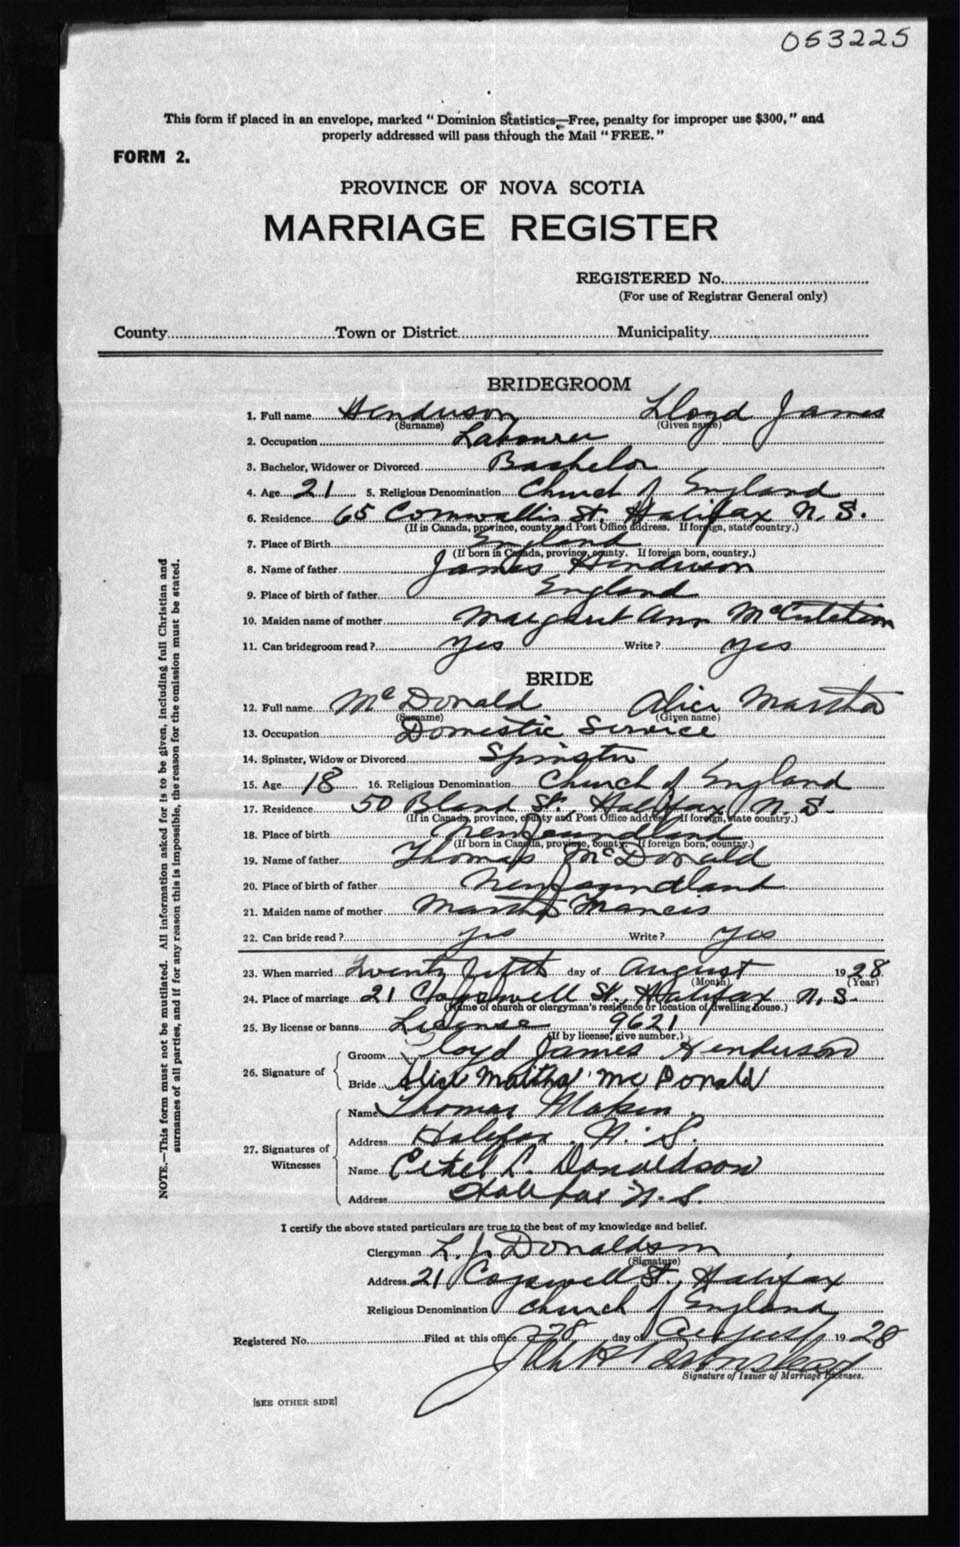 053225
This form if placed in an envelope, marked "Dominion Statistics—Free, penalty for improper use $300," and
properly addressed will pass through the Mail "FREE."
FORM 2.
PROVINCE OF NOVA SCOTIA
MARRIAGE REGISTER
REGISTERED No.
(For use of Registrar General only)
County Town or District Municipality
BRIDEGROOM
1. Full name Henderson Lloyd James
(Surname) (Given name)
2. Occupation Labourer
3. Bachelor, Widower or Divorced Bachelor
4. Age 21 5. Religious Denomination Church of England
6. Residence 65 Cornwallis St. Halifax N.S.
(If in Canada, province, county and Post Office address. If foreign, state country.)
7. Place of Birth England
(If born in Canada, province, county. If foreign born, country.)
8. Name of father James Henderson
9. Place of birth of father England
10. Maiden name of mother Margaret Ann
11. Can bridegroom read? Yes Write? Yes
BRIDE
12. Full name McDonald Alice Martha
(Surname) (Given name)
13. Occupation Domestic Service
14. Spinster, Widow or Divorced Spinster
15. Age 18 16. Religious Denomination Church of England
17. Residence 50 Bland St. Halifax N.S.
(If in Canada, province, county and Post Office address. If foreign, state country.)
18. Place of birth Newfoundland
(If born in Canada, province, county. If foreign born, country.)
19. Name of father Thomas McDonald
20. Place of birth of father Newfoundland
21. Maiden name of mother Martha Francis
22. Can bride read? yes Write? yes
23. When married Twenty fifth day of August 1928
(Month) (Year)
24. Place of marriage 21 Cogswell St., Halifax N.S.
(Name of church or clergyman's residence or location of dwelling house.)
25. By license or banns License 9621
(If by license, give number.)
26. Signature of
Groom Lloyd James Henderson
Bride Alice Martha McDonald
27. Signatures of Witnesses
Name Thomas Makin
Address Halifax, N.S.
Name Ethel L. Donaldson
Address Halifax N.S.
I certify the above stated particulars are true to the best of my knowledge and belief.
Clergyman L. J. Donaldson
(Signature)
Address 21 Cogswell St., Halifax
Religious Denomination Church of England
Registered No. Filed at this office 28 day of August 1928
Signature of Issuer of Marriage Licenses.
[SEE OTHER SIDE]
NOTE.—This form must not be mutilated. All information asked for is to be given, including full Christian and
surnames of all parties, and if for any reason this is impossible, the reason for the omission must be stated.